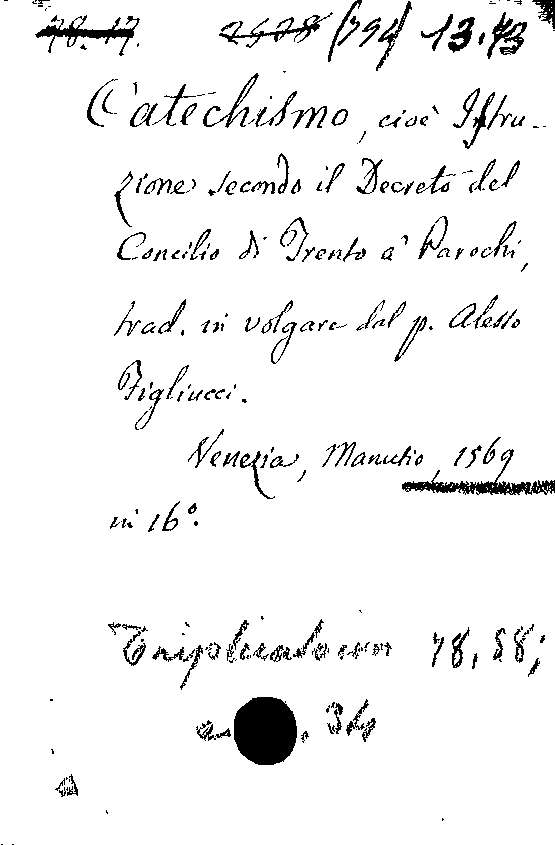 78. 17. 2578 (794) 13.73
Catechismo, cioè Istru-
zione secondo il Decreto del
Concilio di Trento a' Parochi,
trad. in volgare dal p. Alesso
Figliucci.
Venezia, Manutio, 1569
in 16°.
Triplicatocum 78, 58;
34